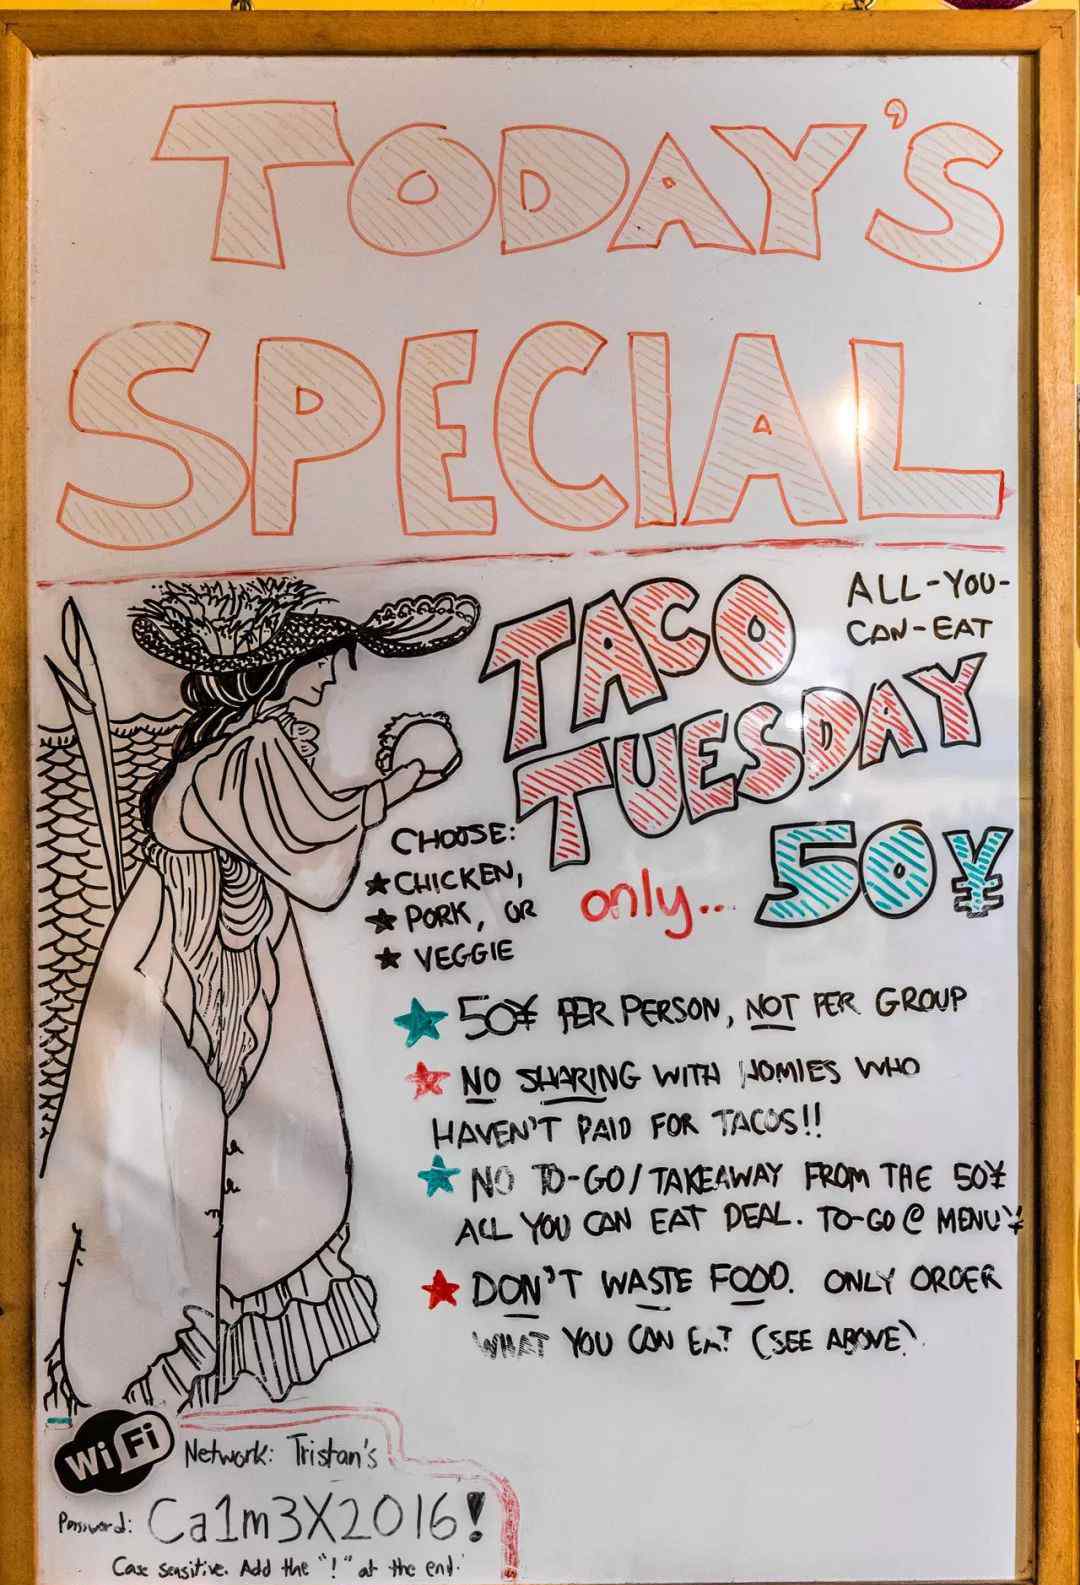 TODAY'S
SPECIAL
ALL-YOU-
CAN-EAT
TACO
TUESDAY
only... 50¥
CHOOSE:
★ CHICKEN,
★ PORK, OR
★ VEGGIE
★ 50¥ PER PERSON, NOT PER GROUP
★ NO SHARING WITH HOMIES WHO
HAVEN'T PAID FOR TACOS!!
★ NO TO-GO/TAKEAWAY FROM THE 50¥
ALL YOU CAN EAT DEAL. TO-GO @ MENU ¥
★ DON'T WASTE FOOD. ONLY ORDER
WHAT YOU CAN EAT (SEE ABOVE)
WiFi Network: Tristan's
Password: Ca1m3X2016!
Case sensitive. Add the "!" at the end.